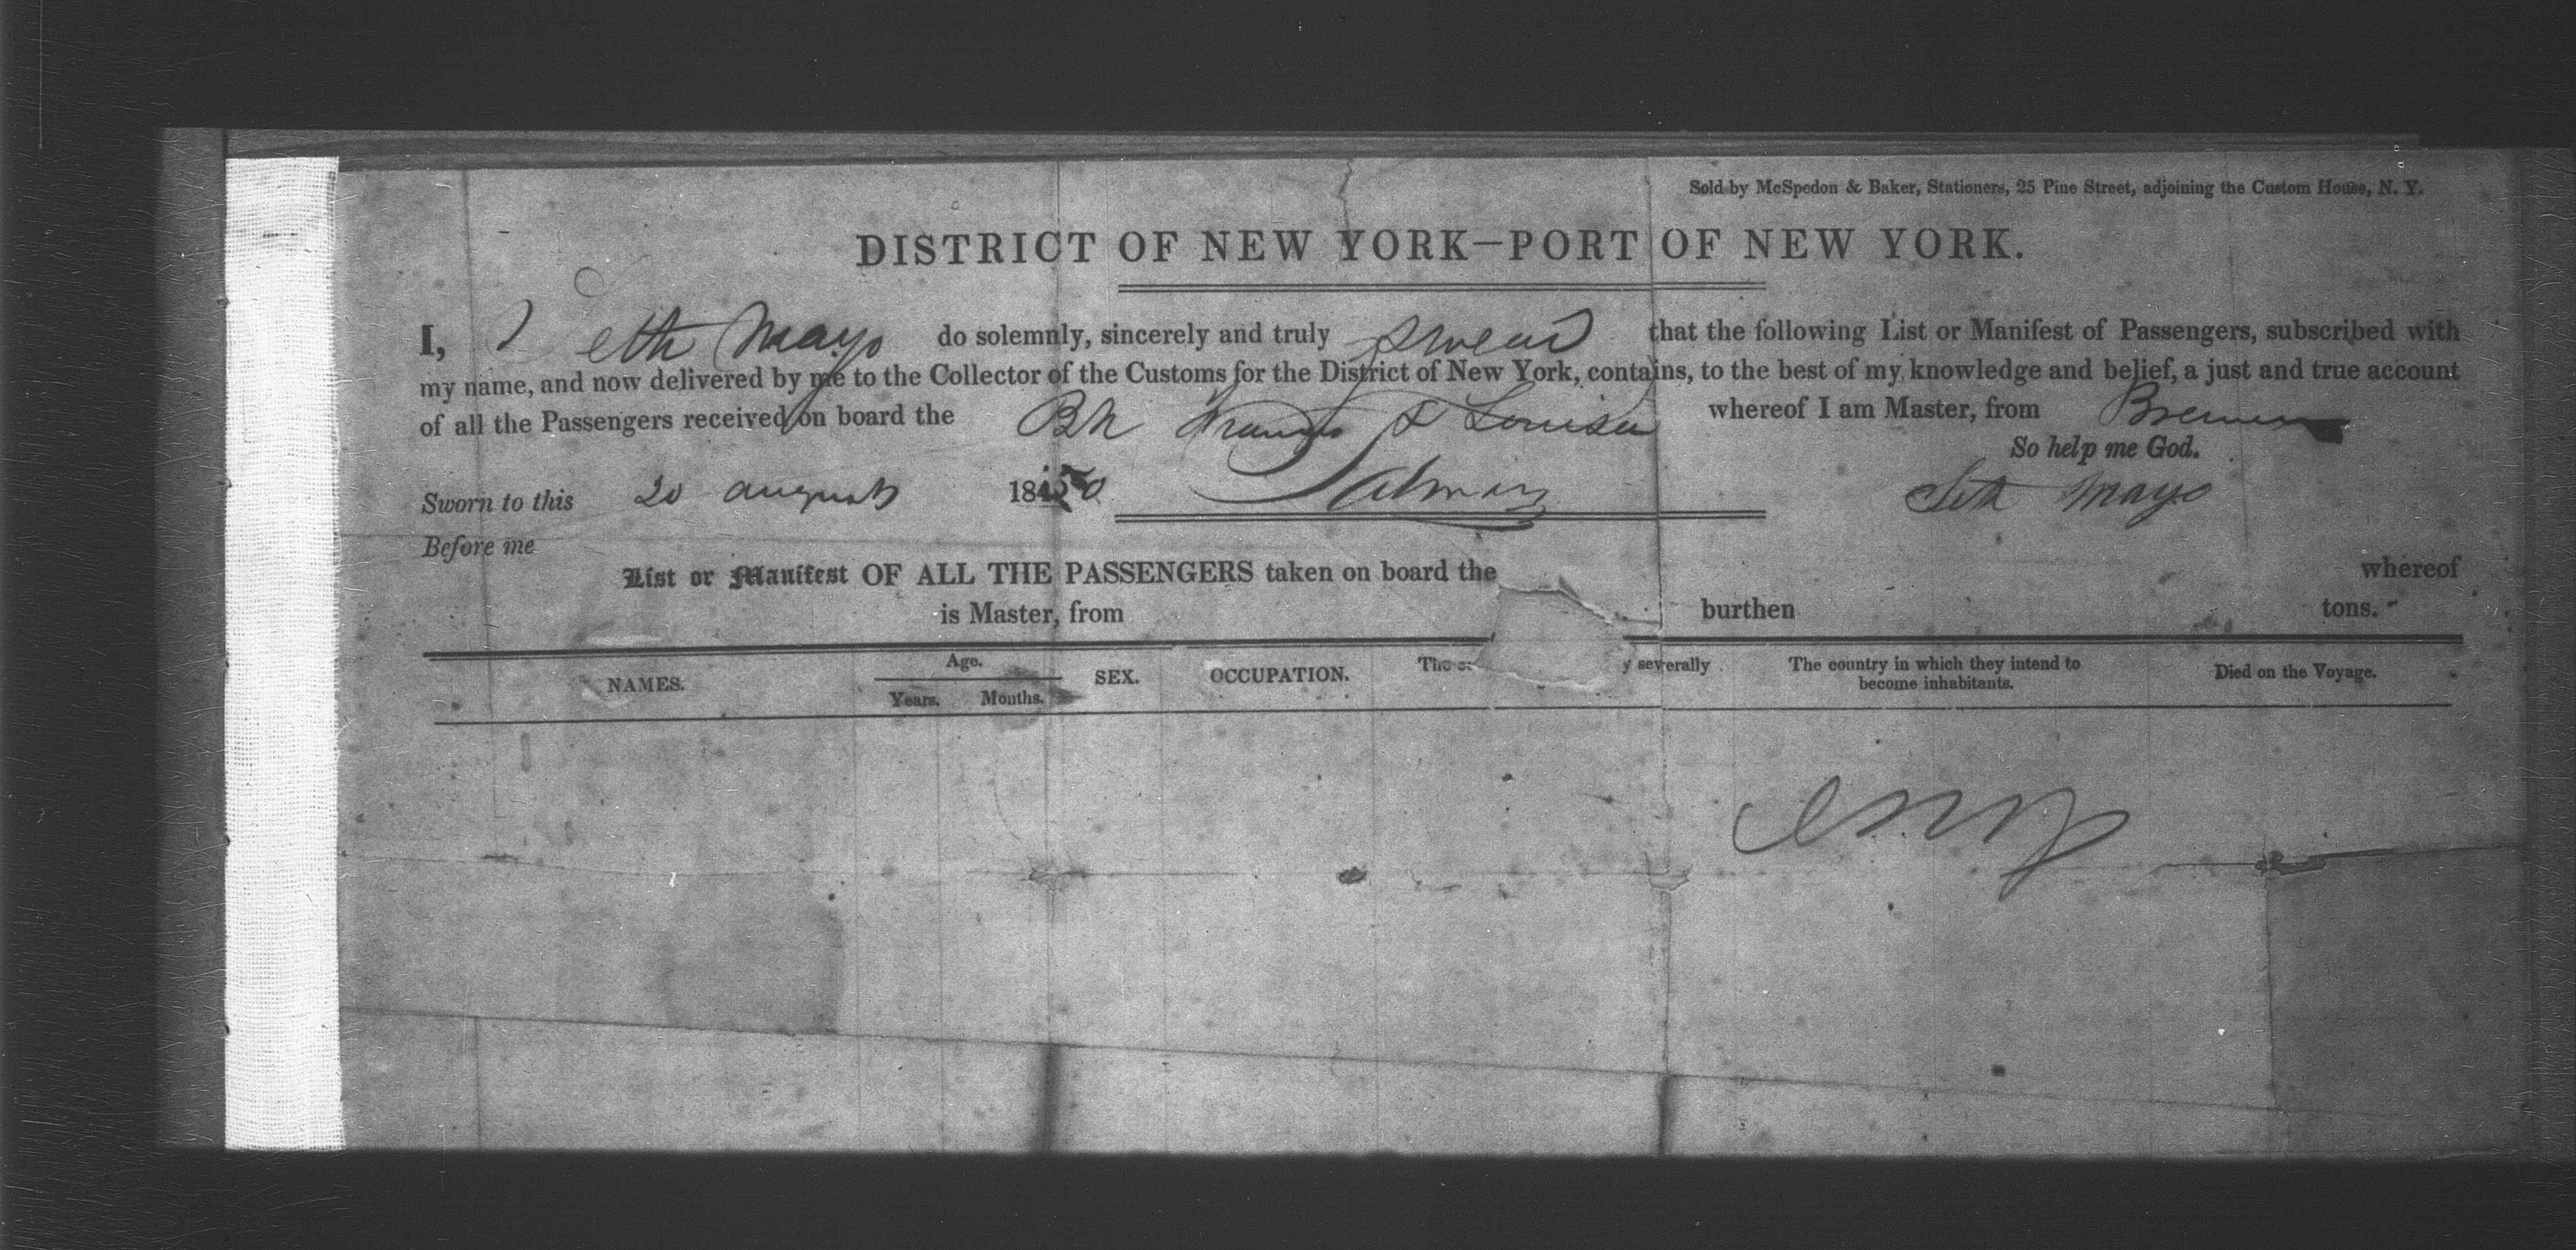 Sold by McSpedon & Baker, Stationers, 25 Pine Street, adjoining the Custom House, N. Y.
DISTRICT OF NEW YORK—PORT OF NEW YORK.
I, Seth Mayo do solemnly, sincerely and truly swear that the following List or Manifest of Passengers, subscribed with
my name, and now delivered by me to the Collector of the Customs for the District of New York, contains, to the best of my knowledge and belief, a just and true account
of all the Passengers received on board the Bk & Louisa whereof I am Master, from Bremen
So help me God.
Sworn to this 20 august 1850 Seth Mayo
Before me
List or Manifest OF ALL THE PASSENGERS taken on board the whereof
is Master, from burthen tons.
NAMES. Age. Years. Months. SEX. OCCUPATION. The y severally The country in which they intend to become inhabitants. Died on the Voyage.